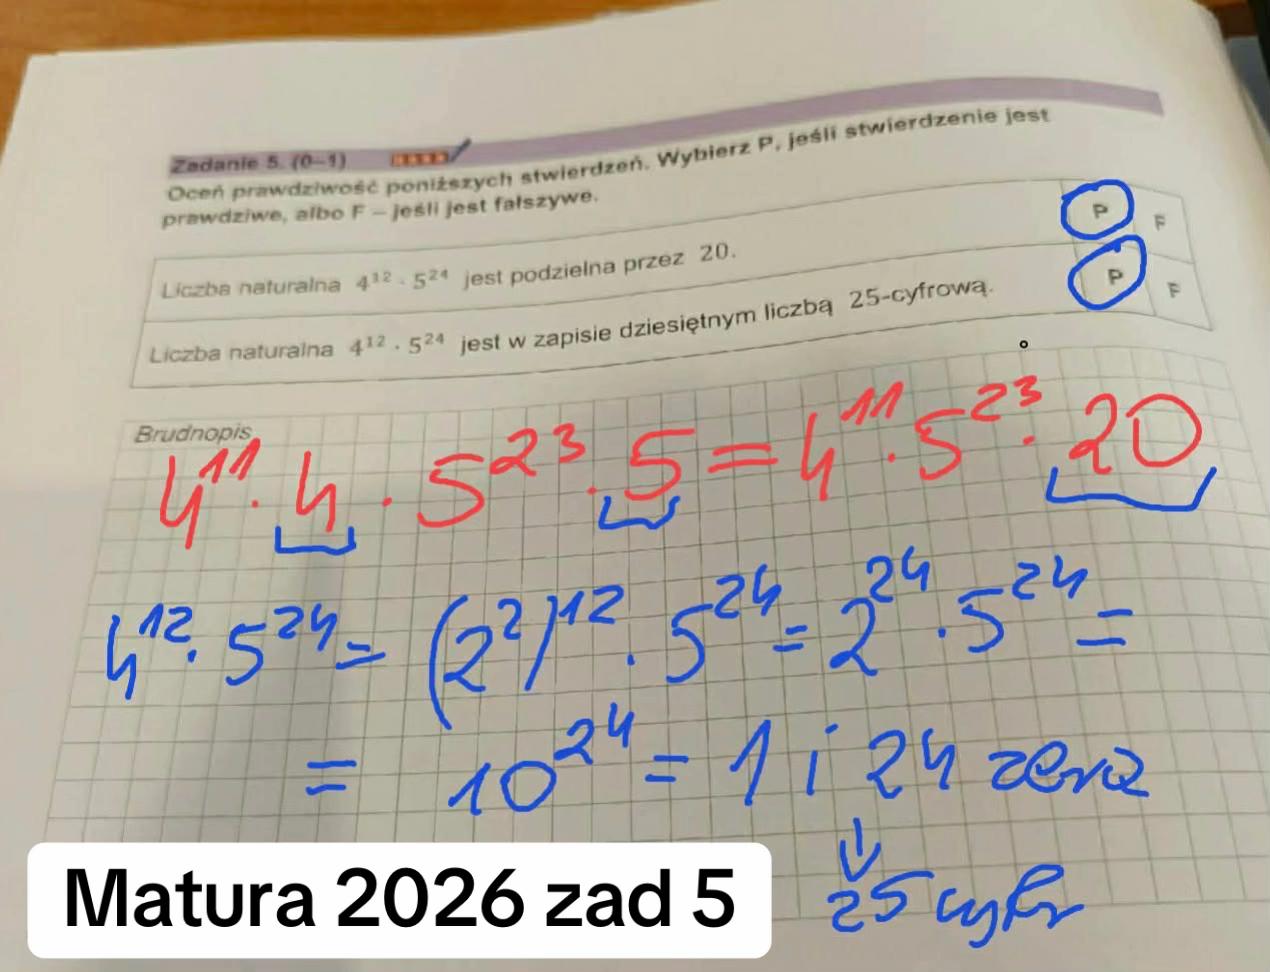 Zadanie 5. (0–1)
Oceń prawdziwość poniższych stwierdzeń. Wybierz P, jeśli stwierdzenie jest
prawdziwe, albo F – jeśli jest fałszywe.
Liczba naturalna 4¹² · 5²⁴ jest podzielna przez 20. P F
Liczba naturalna 4¹² · 5²⁴ jest w zapisie dziesiętnym liczbą 25-cyfrową. P F
Brudnopis
4¹¹ · 4 · 5²³ · 5 = 4¹¹ · 5²³ · 20
4¹² · 5²⁴ = (2²)¹² · 5²⁴ = 2²⁴ · 5²⁴ =
= 10²⁴ = 1 i 24 zera
↓
25 cyfr
Matura 2026 zad 5